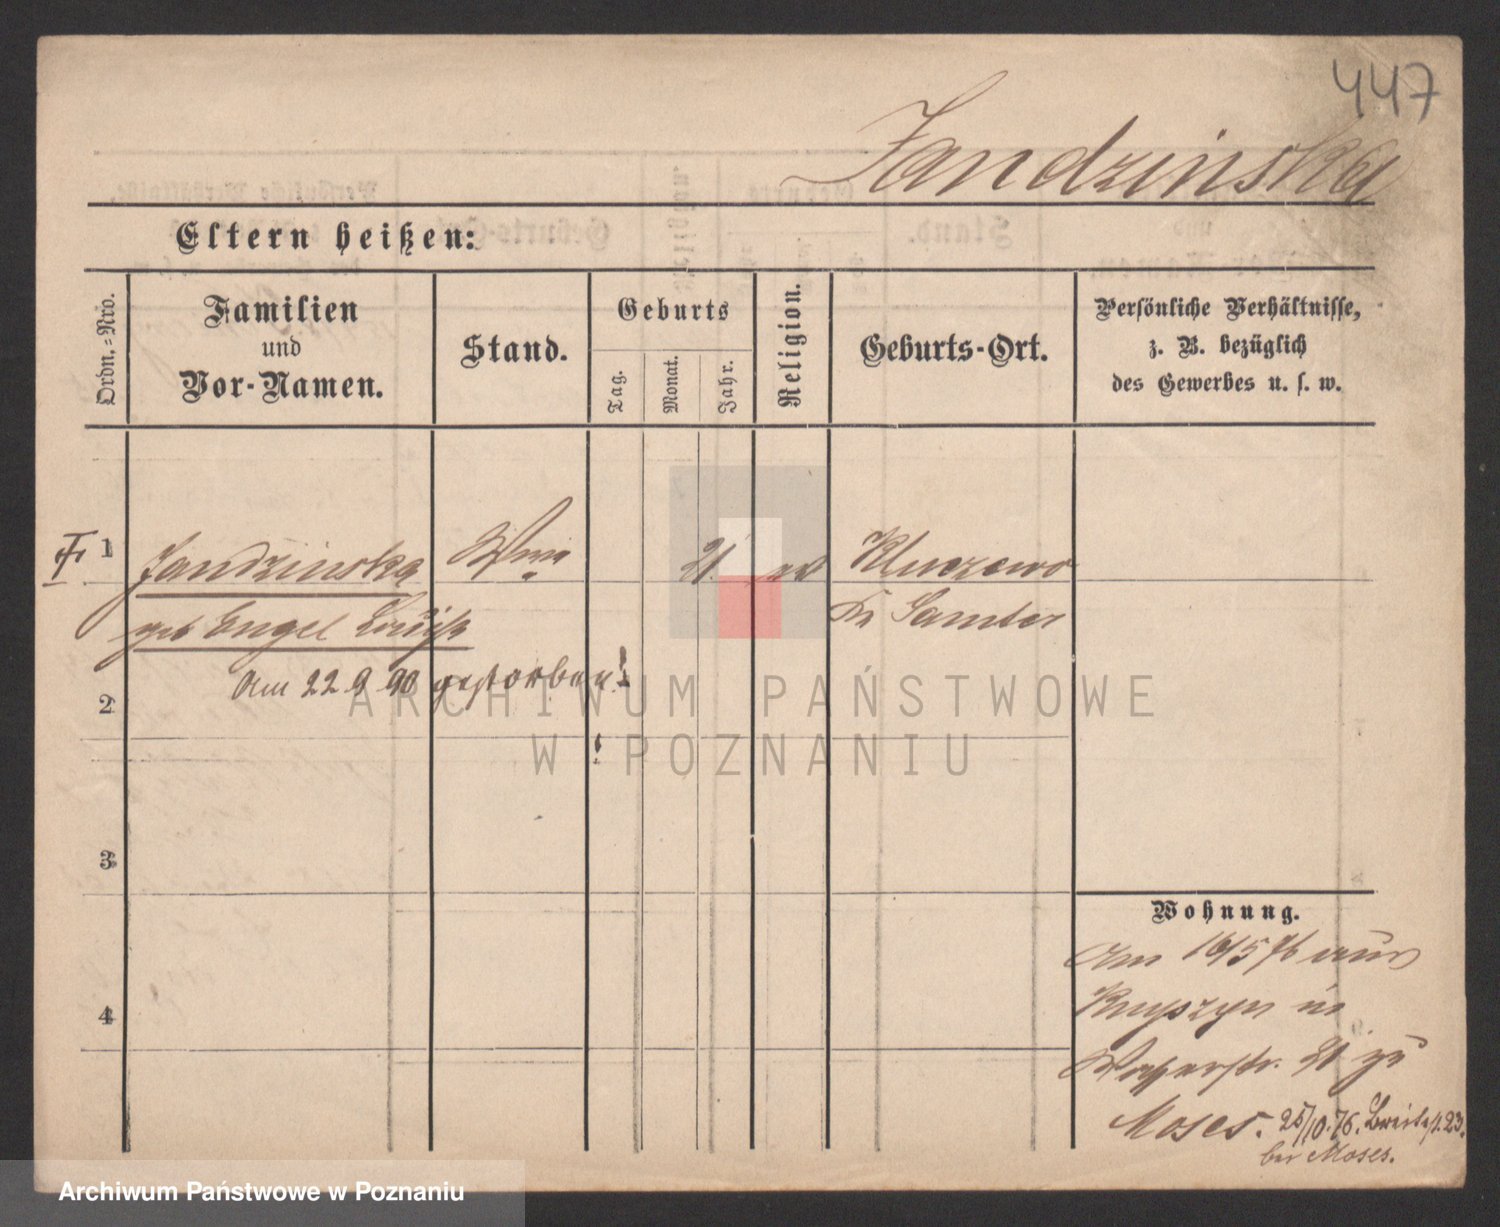 447
Jandzinska
Eltern heißen:
Ordn.-Nro.
Familien
und
Vor-Namen.
Stand.
Geburts
Tag.
Monat.
Jahr.
Religion.
Geburts-Ort.
Persönliche Verhältnisse,
z. B. bezüglich
des Gewerbes u. s. w.
1
Jandzinska
Wwe
21
ev
Kluczewo
geb Engel Louise
Kr Samter
Am 22 9 90 gestorben!
2
3
4
Wohnung.
Am 16/5 76 aus
in
Wasserstr. 21 zu
Moses. 25/10.76. Breitestr. 23.
bei Moses.
ARCHIWUM PAŃSTWOWE
W POZNANIU
Archiwum Państwowe w Poznaniu